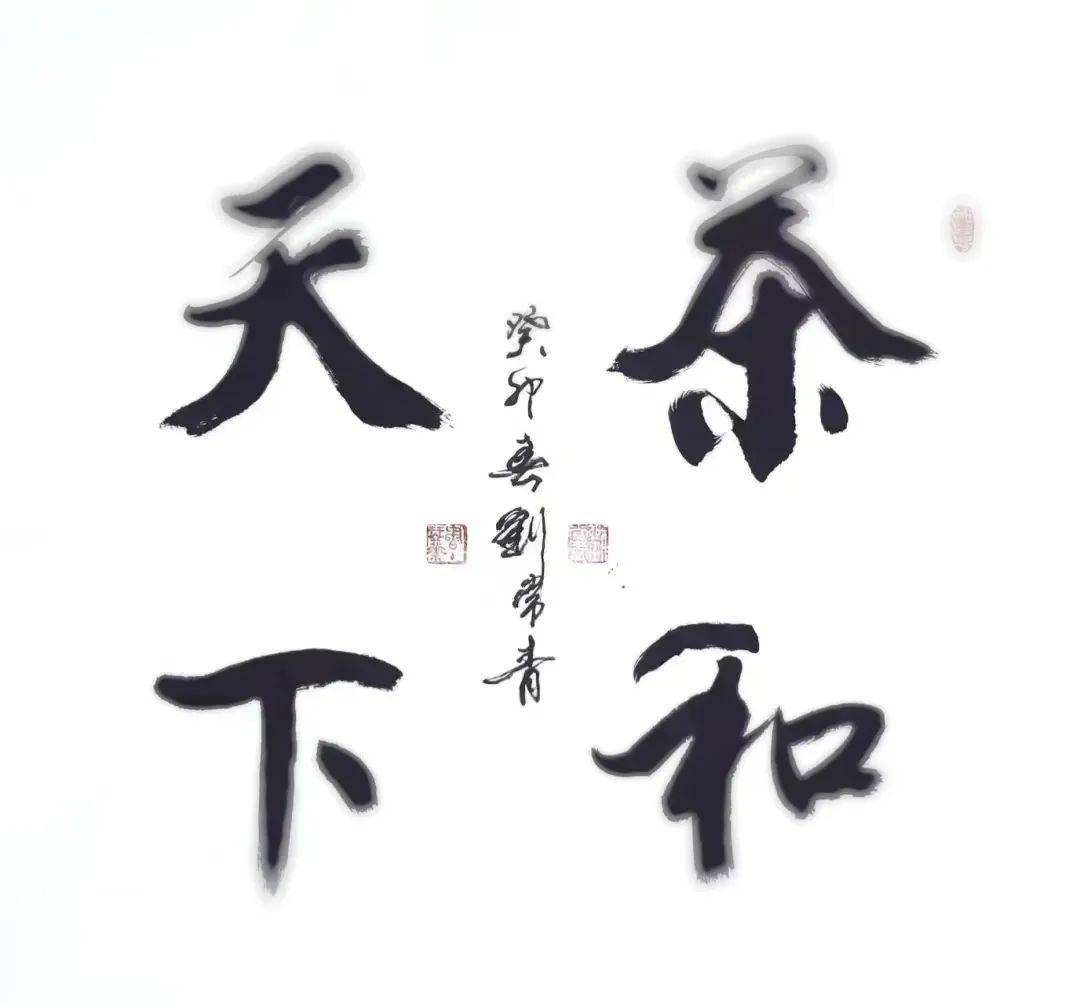 茶和
天下
癸卯春劉常青